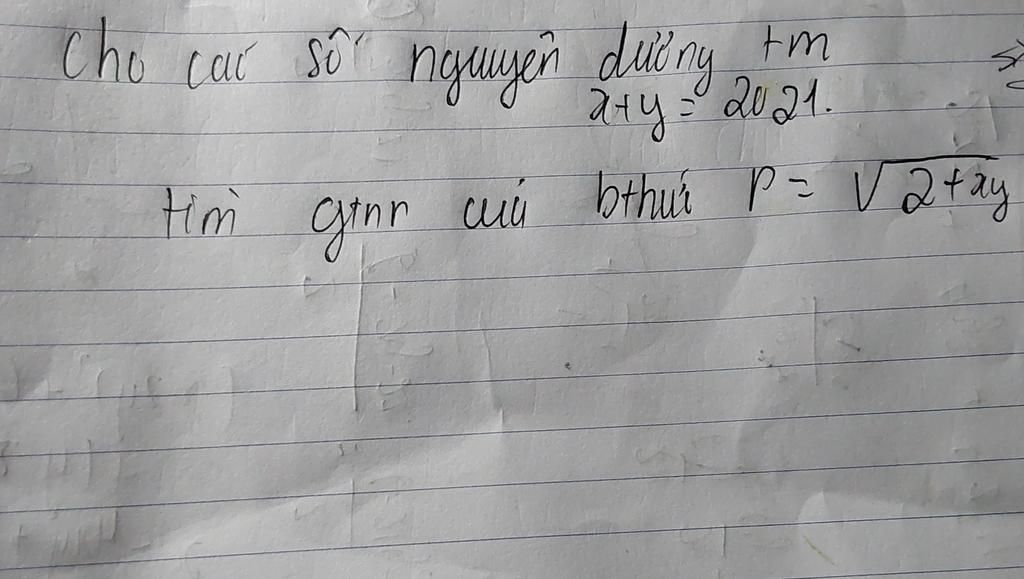 Cho các số nguyên dương tm
x+y = 2021.
tìm gtnn của bthức P = √2+xy